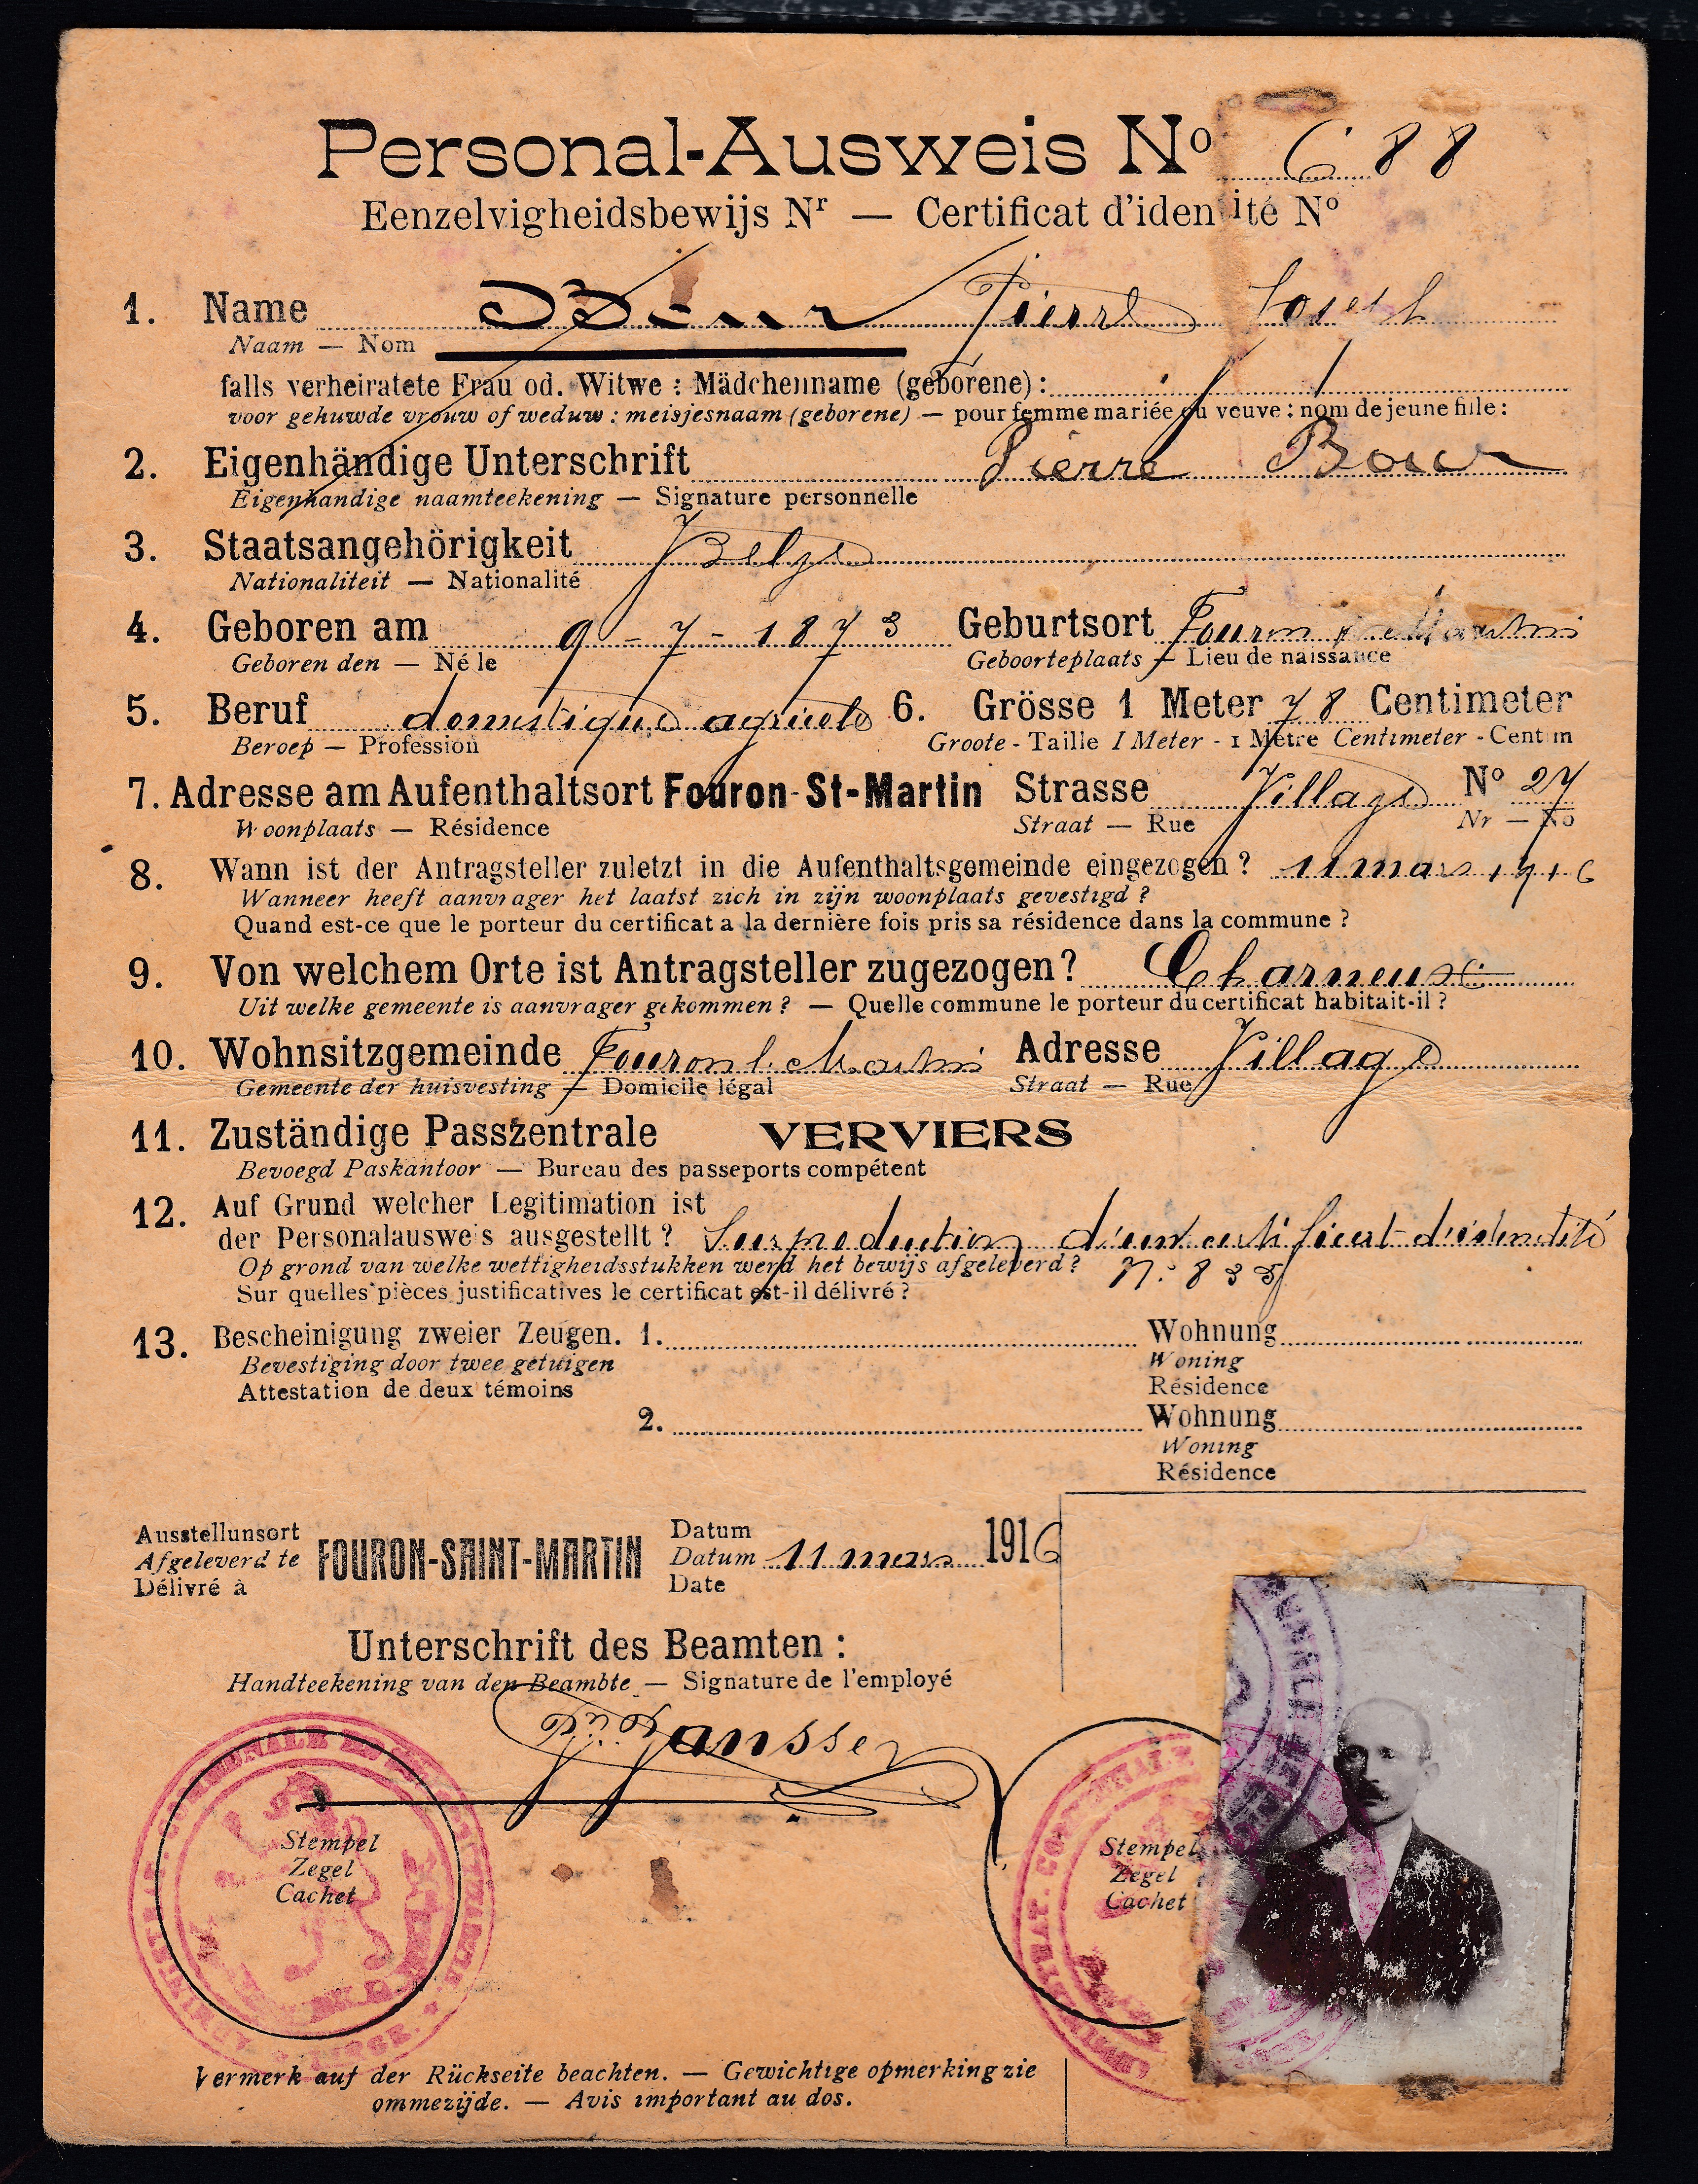 Personal-Ausweis Nº 688
Eenzelvigheidsbewijs Nʳ — Certificat d'identité Nº
1. Name Pierre Joseph
Naam — Nom
falls verheiratete Frau od. Witwe : Mädchenname (geborene) :
voor gehuwde vrouw of weduw : meisjesnaam (geborene) — pour femme mariée ou veuve : nom de jeune fille :
2. Eigenhändige Unterschrift Pierre
Eigenhandige naamteekening — Signature personnelle
3. Staatsangehörigkeit Belge
Nationaliteit — Nationalité
4. Geboren am 9-7-1873 Geburtsort Fouron St Martin
Geboren den — Né le Geboorteplaats — Lieu de naissance
5. Beruf domestique agricole 6. Grösse 1 Meter 78 Centimeter
Beroep — Profession Groote - Taille 1 Meter - 1 Mètre Centimeter - Centim
7. Adresse am Aufenthaltsort Fouron-St-Martin Strasse Village Nº 27
Woonplaats — Résidence Straat — Rue Nr — No
8. Wann ist der Antragsteller zuletzt in die Aufenthaltsgemeinde eingezogen ? 11 mars 1916
Wanneer heeft aanvrager het laatst zich in zijn woonplaats gevestigd ?
Quand est-ce que le porteur du certificat a la dernière fois pris sa résidence dans la commune ?
9. Von welchem Orte ist Antragsteller zugezogen ? Charneux
Uit welke gemeente is aanvrager gekommen ? — Quelle commune le porteur du certificat habitait-il ?
10. Wohnsitzgemeinde Fouron St Martin Adresse Village
Gemeente der huisvesting — Domicile légal Straat — Rue
11. Zuständige Passzentrale VERVIERS
Bevoegd Paskantoor — Bureau des passeports compétent
12. Auf Grund welcher Legitimation ist
der Personalausweis ausgestellt ? Sur production d'un certificat d'identité
Op grond van welke wettigheidsstukken werd het bewijs afgeleverd ? Nº 835
Sur quelles pièces justificatives le certificat est-il délivré ?
13. Bescheinigung zweier Zeugen. 1. Wohnung
Bevestiging door twee getuigen Woning
Attestation de deux témoins Résidence
2. Wohnung
Woning
Résidence
Ausstellunsort Datum
Afgeleverd te FOURON-SAINT-MARTIN Datum 11 mars 1916
Délivré à Date
Unterschrift des Beamten :
Handteekening van den Beambte — Signature de l'employé
Janssen
Stempel
Zegel
Cachet
Stempel
Zegel
Cachet
Vermerk auf der Rückseite beachten. — Gewichtige opmerking zie
ommezijde. — Avis important au dos.